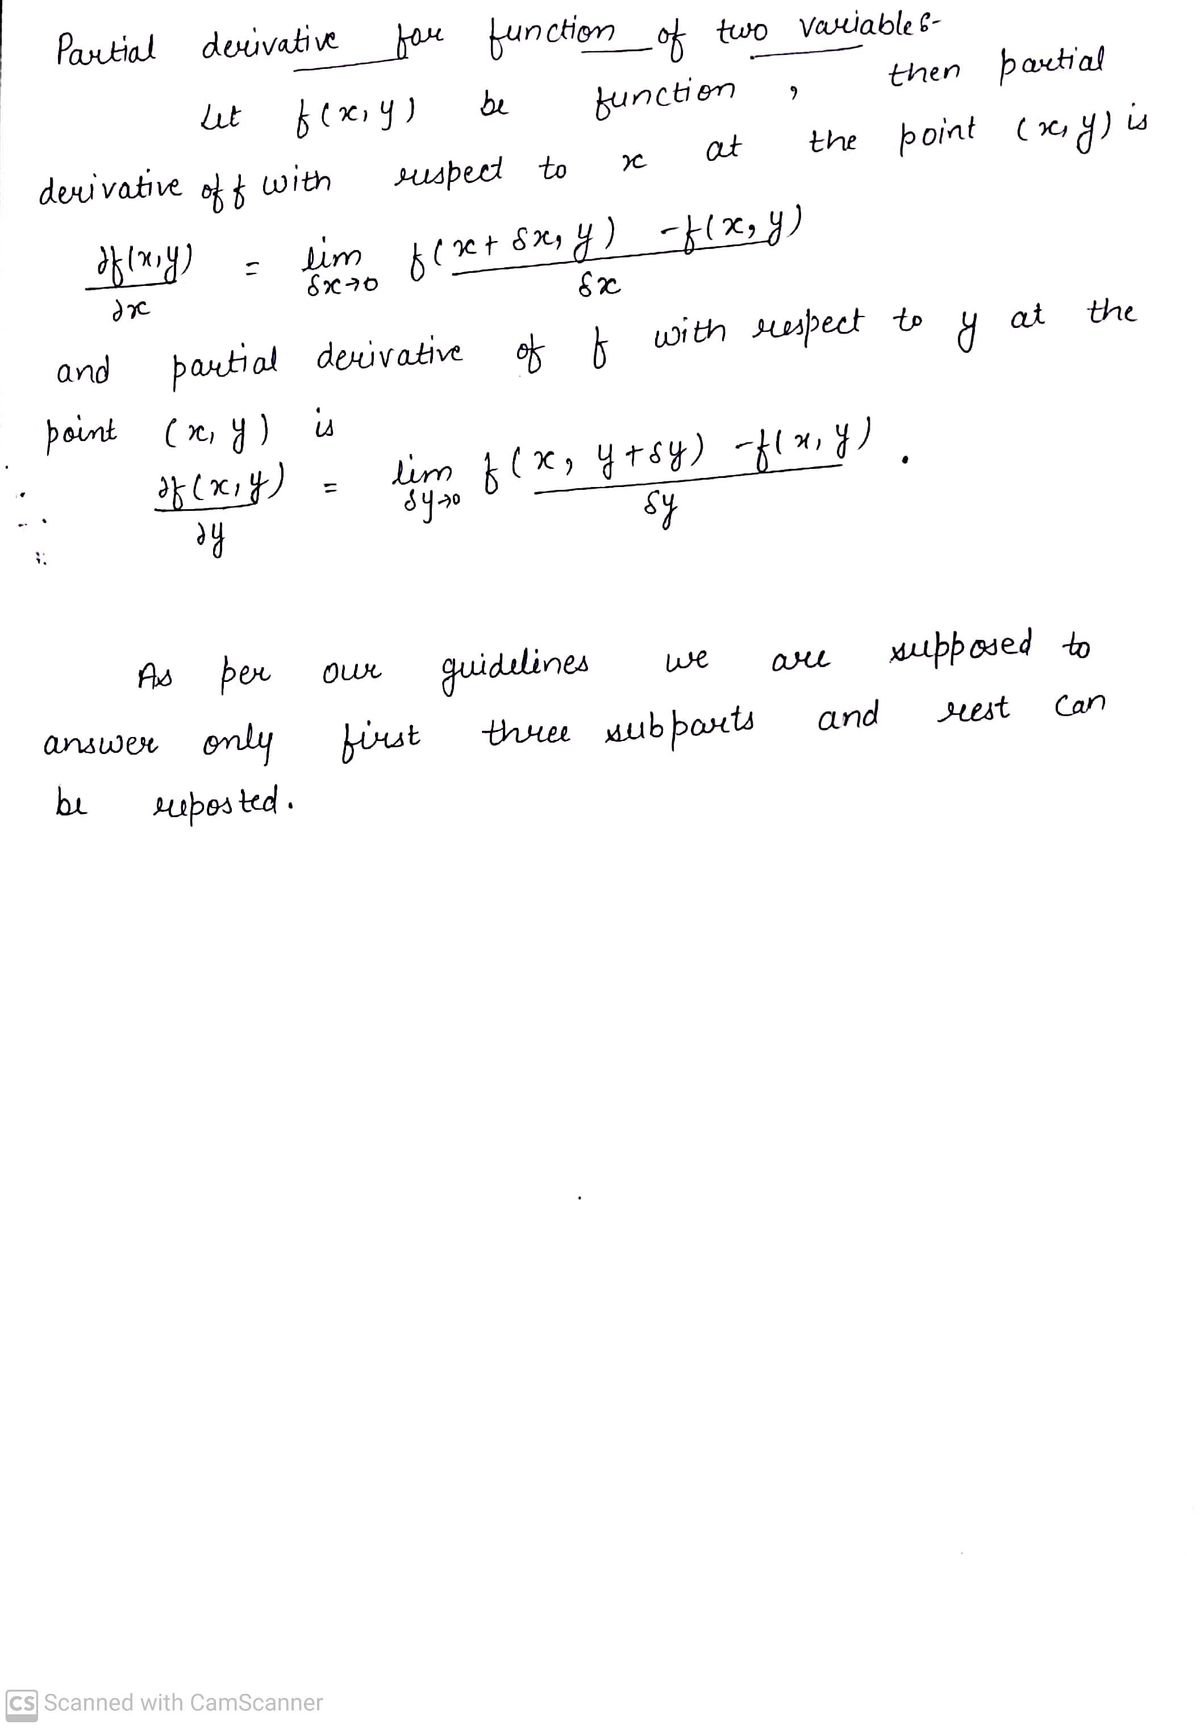 Partial derivative for function of two variables-
Let f(x, y) be function, then partial
derivative of f with respect to x at the point (x, y) is
∂f(x,y)/∂x = lim δx→0 f(x+δx, y) - f(x, y)/δx
and partial derivative of f with respect to y at the
point (x, y) is
∂f(x,y)/∂y = lim δy→0 f(x, y+δy) - f(x, y)/δy.
As per our guidelines we are supposed to
answer only first three subparts and rest can
be reposted.
CS Scanned with CamScanner